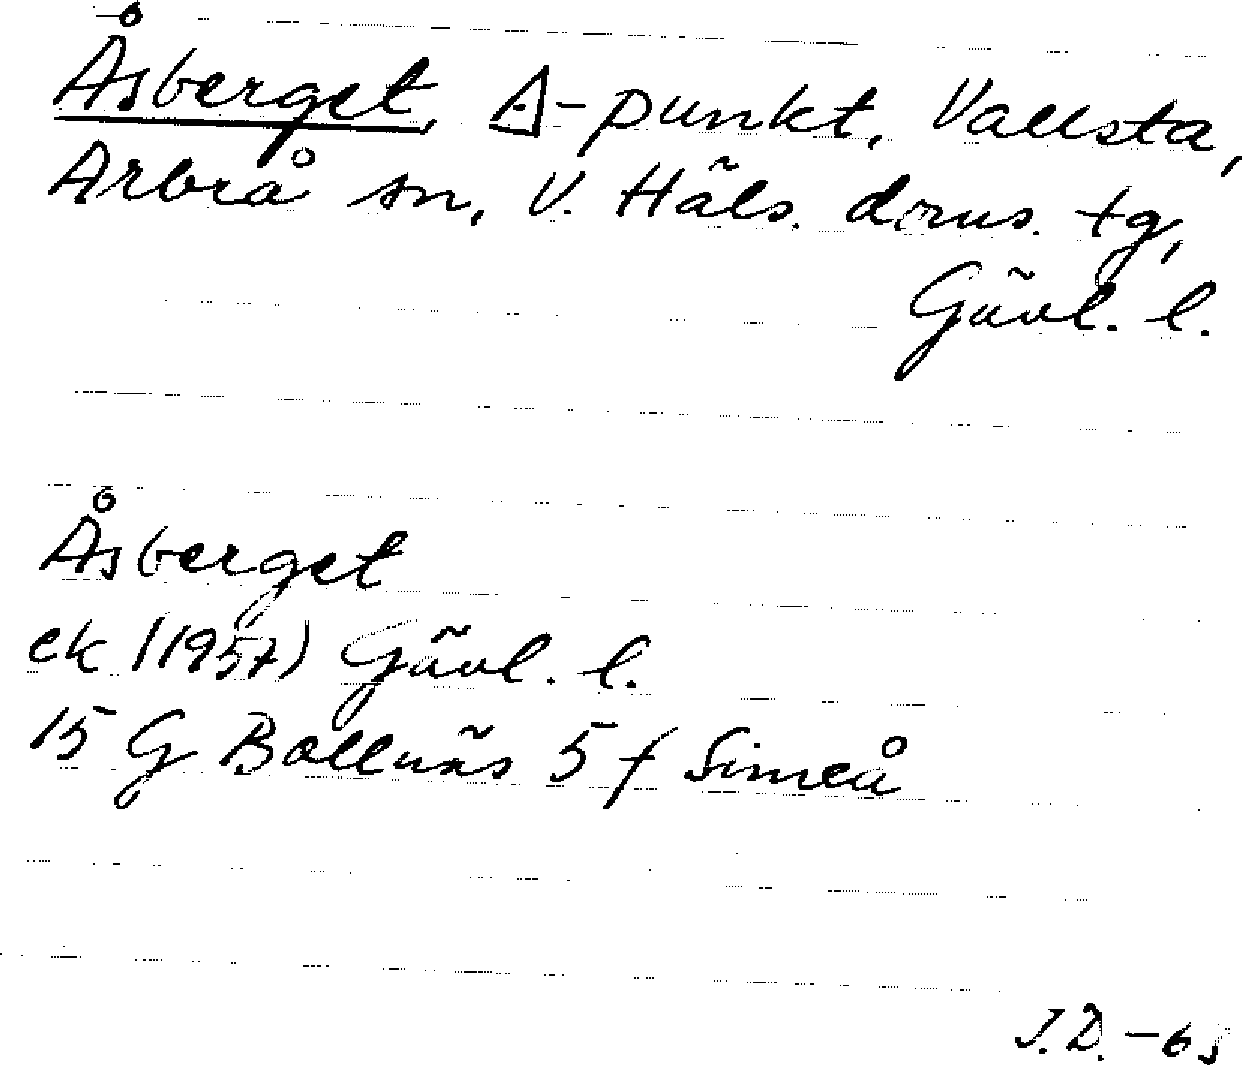 Åsberget, △-punkt, Vallsta,
Arbrå sn, V. Häls. doms. tg,
Gävl. l.
Åsberget
ek (1957) Gävl. l.
15 G Bollnäs 5 f Simeå
J.D. -65